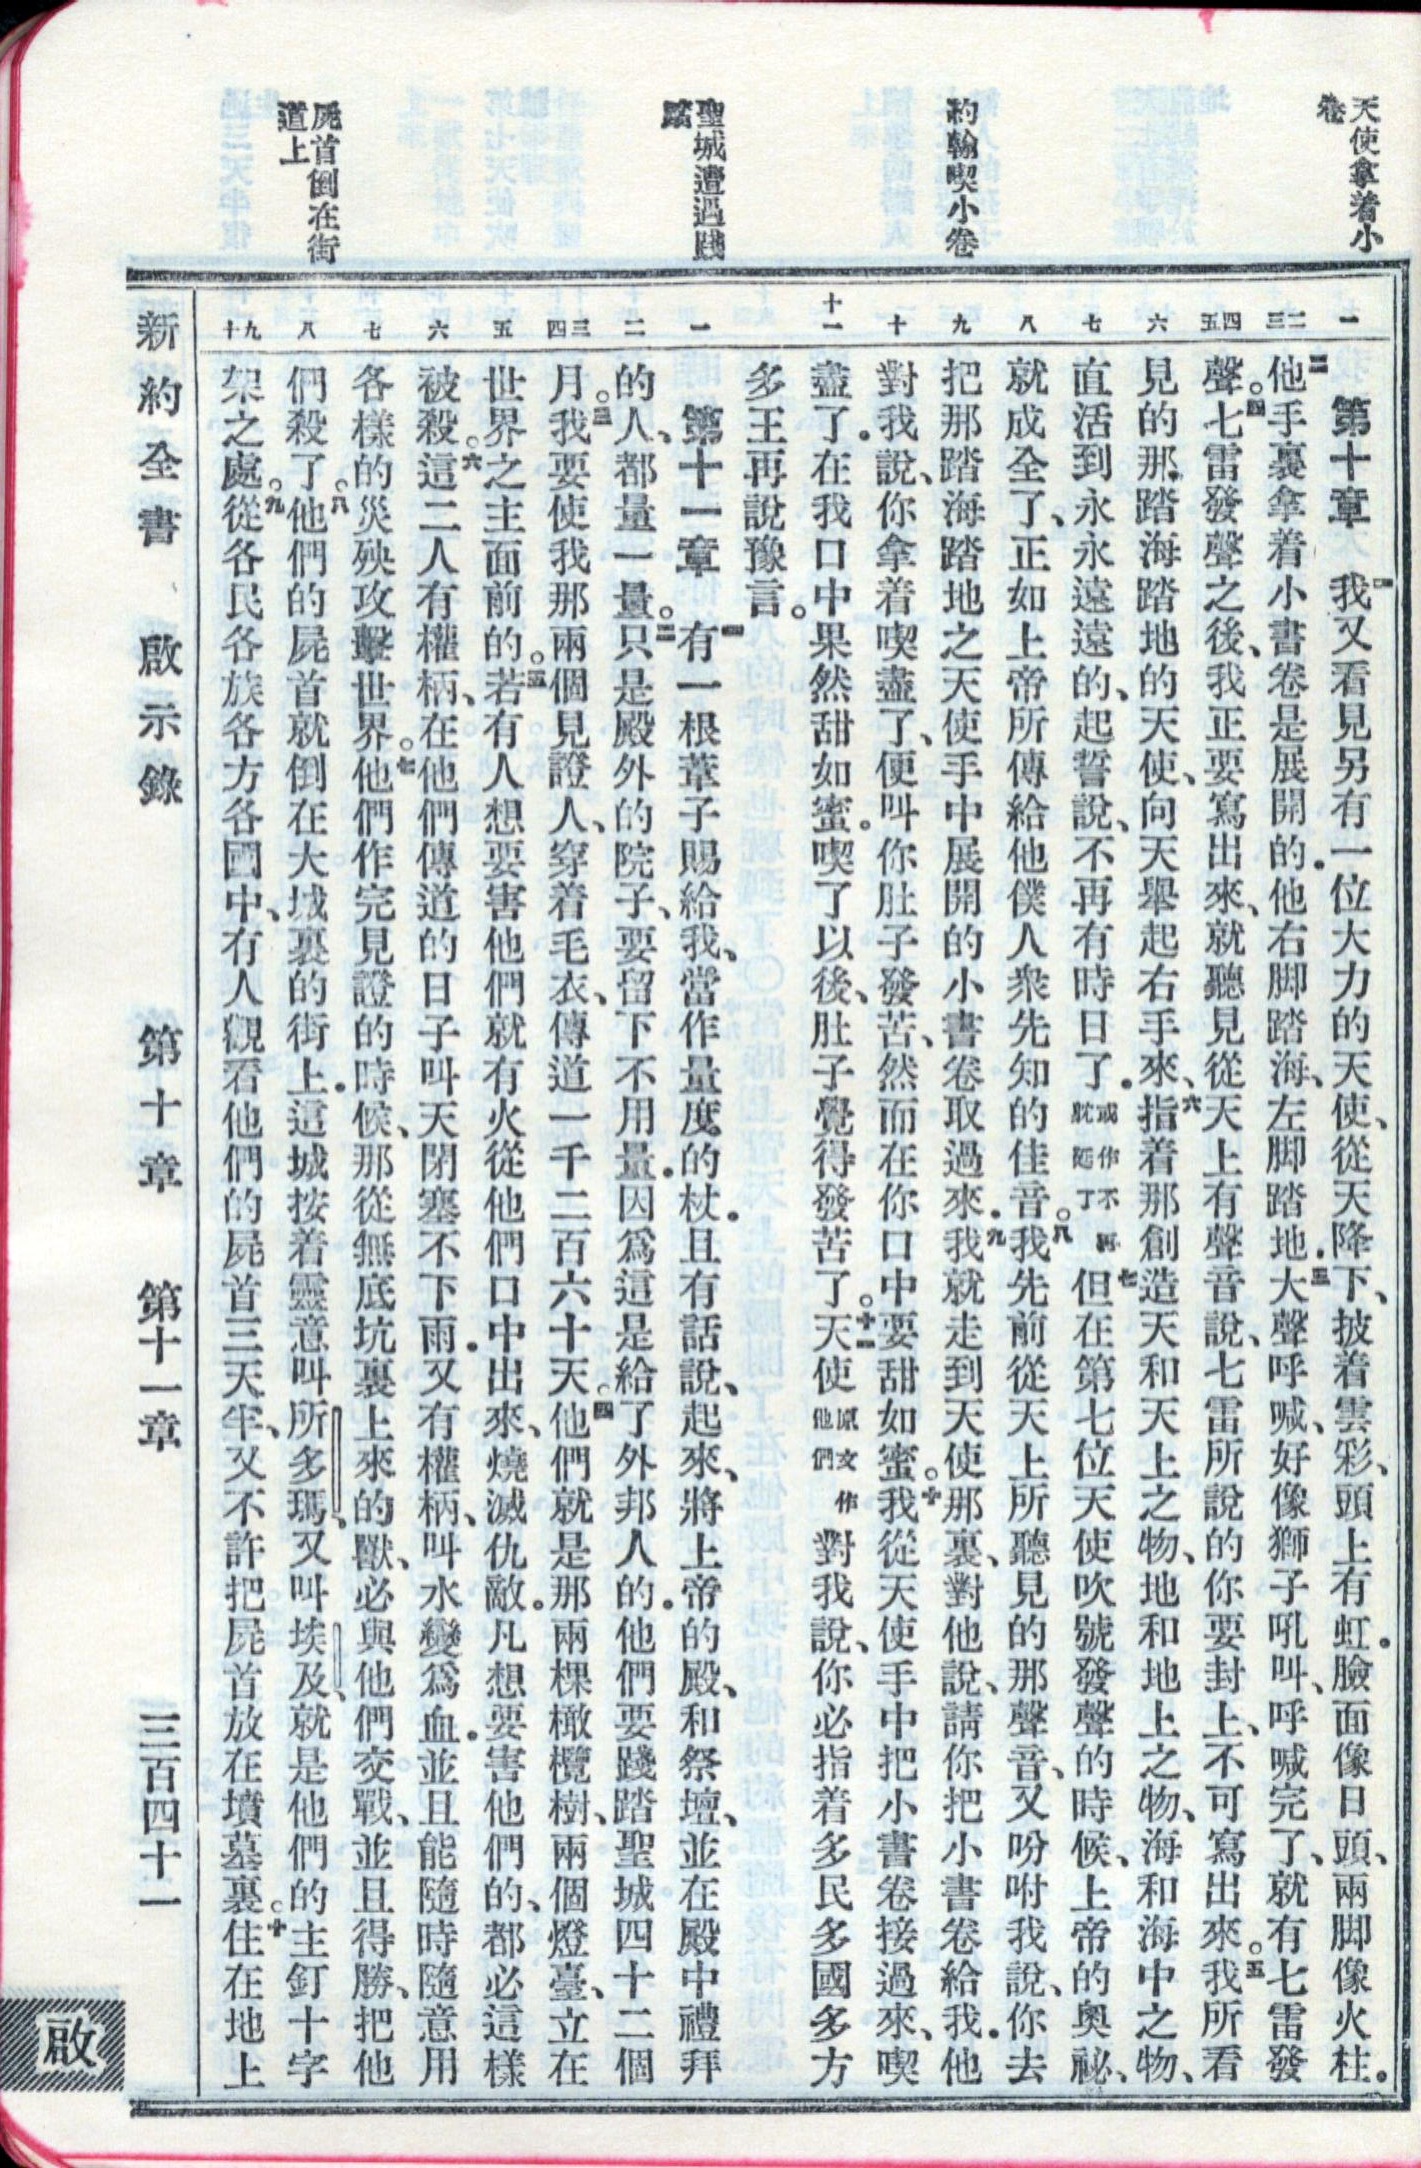 天使拿着小
卷
約翰喫小卷
聖城遭遇踐
踏
屍首倒在街
道上
一
二三
四五
六
七
八
九
十
十一
一
二
三四
五
六
七
八
九十
第十章 一我又看見另有一位大力的天使、從天降下、披着雲彩、頭上有虹．臉面像日頭、兩脚像火柱．
二他手裏拿着小書卷是展開的．他右脚踏海、左脚踏地．三大聲呼喊、好像獅子吼叫、呼喊完了、就有七雷發
聲。四七雷發聲之後、我正要寫出來、就聽見從天上有聲音說、七雷所說的你要封上、不可寫出來。五我所看
見的那踏海踏地的天使、向天舉起右手來、六指着那創造天和天上之物、地和地上之物、海和海中之物、
直活到永永遠遠的、起誓說、不再有時日了．或作不再躭延了七但在第七位天使吹號發聲的時候、上帝的奧祕、
就成全了、正如上帝所傳給他僕人衆先知的佳音。八我先前從天上所聽見的那聲音、又吩咐我說、你去
把那踏海踏地之天使手中展開的小書卷取過來．九我就走到天使那裏、對他說、請你把小書卷給我．他
對我說、你拿着喫盡了、便叫你肚子發苦、然而在你口中要甜如蜜。十我從天使手中把小書卷接過來、喫
盡了．在我口中果然甜如蜜。喫了以後、肚子覺得發苦了。十一天使原文作他們對我說、你必指着多民多國多方
多王再說豫言。
第十一章 一有一根葦子賜給我、當作量度的杖．且有話說、起來、將上帝的殿、和祭壇、並在殿中禮拜
的人、都量一量。二只是殿外的院子、要留下不用量．因爲這是給了外邦人的．他們要踐踏聖城四十二個
月。三我要使我那兩個見證人、穿着毛衣、傳道一千二百六十天。四他們就是那兩棵橄欖樹、兩個燈臺、立在
世界之主面前的。五若有人想要害他們、就有火從他們口中出來、燒滅仇敵．凡想要害他們的、都必這樣
被殺。六這二人有權柄、在他們傳道的日子叫天閉塞不下雨．又有權柄、叫水變爲血．並且能隨時隨意用
各樣的災殃攻擊世界。七他們作完見證的時候、那從無底坑裏上來的獸、必與他們交戰、並且得勝、把他
們殺了。八他們的屍首就倒在大城裏的街上．這城按着靈意叫所多瑪、又叫埃及、就是他們的主釘十字
架之處。九從各民各族各方各國中、有人觀看他們的屍首三天半、又不許把屍首放在墳墓裏。十住在地上
新約全書 啟示錄 第十章 第十一章 三百四十一
啟